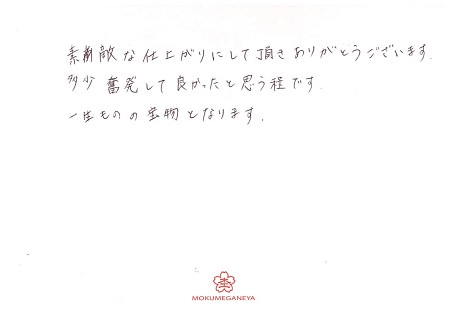 素敵な仕上がりにして頂きありがとうございます.
多少 奮発して良かったと思う程です.
一生ものの宝物となります.
MOKUMEGANEYA